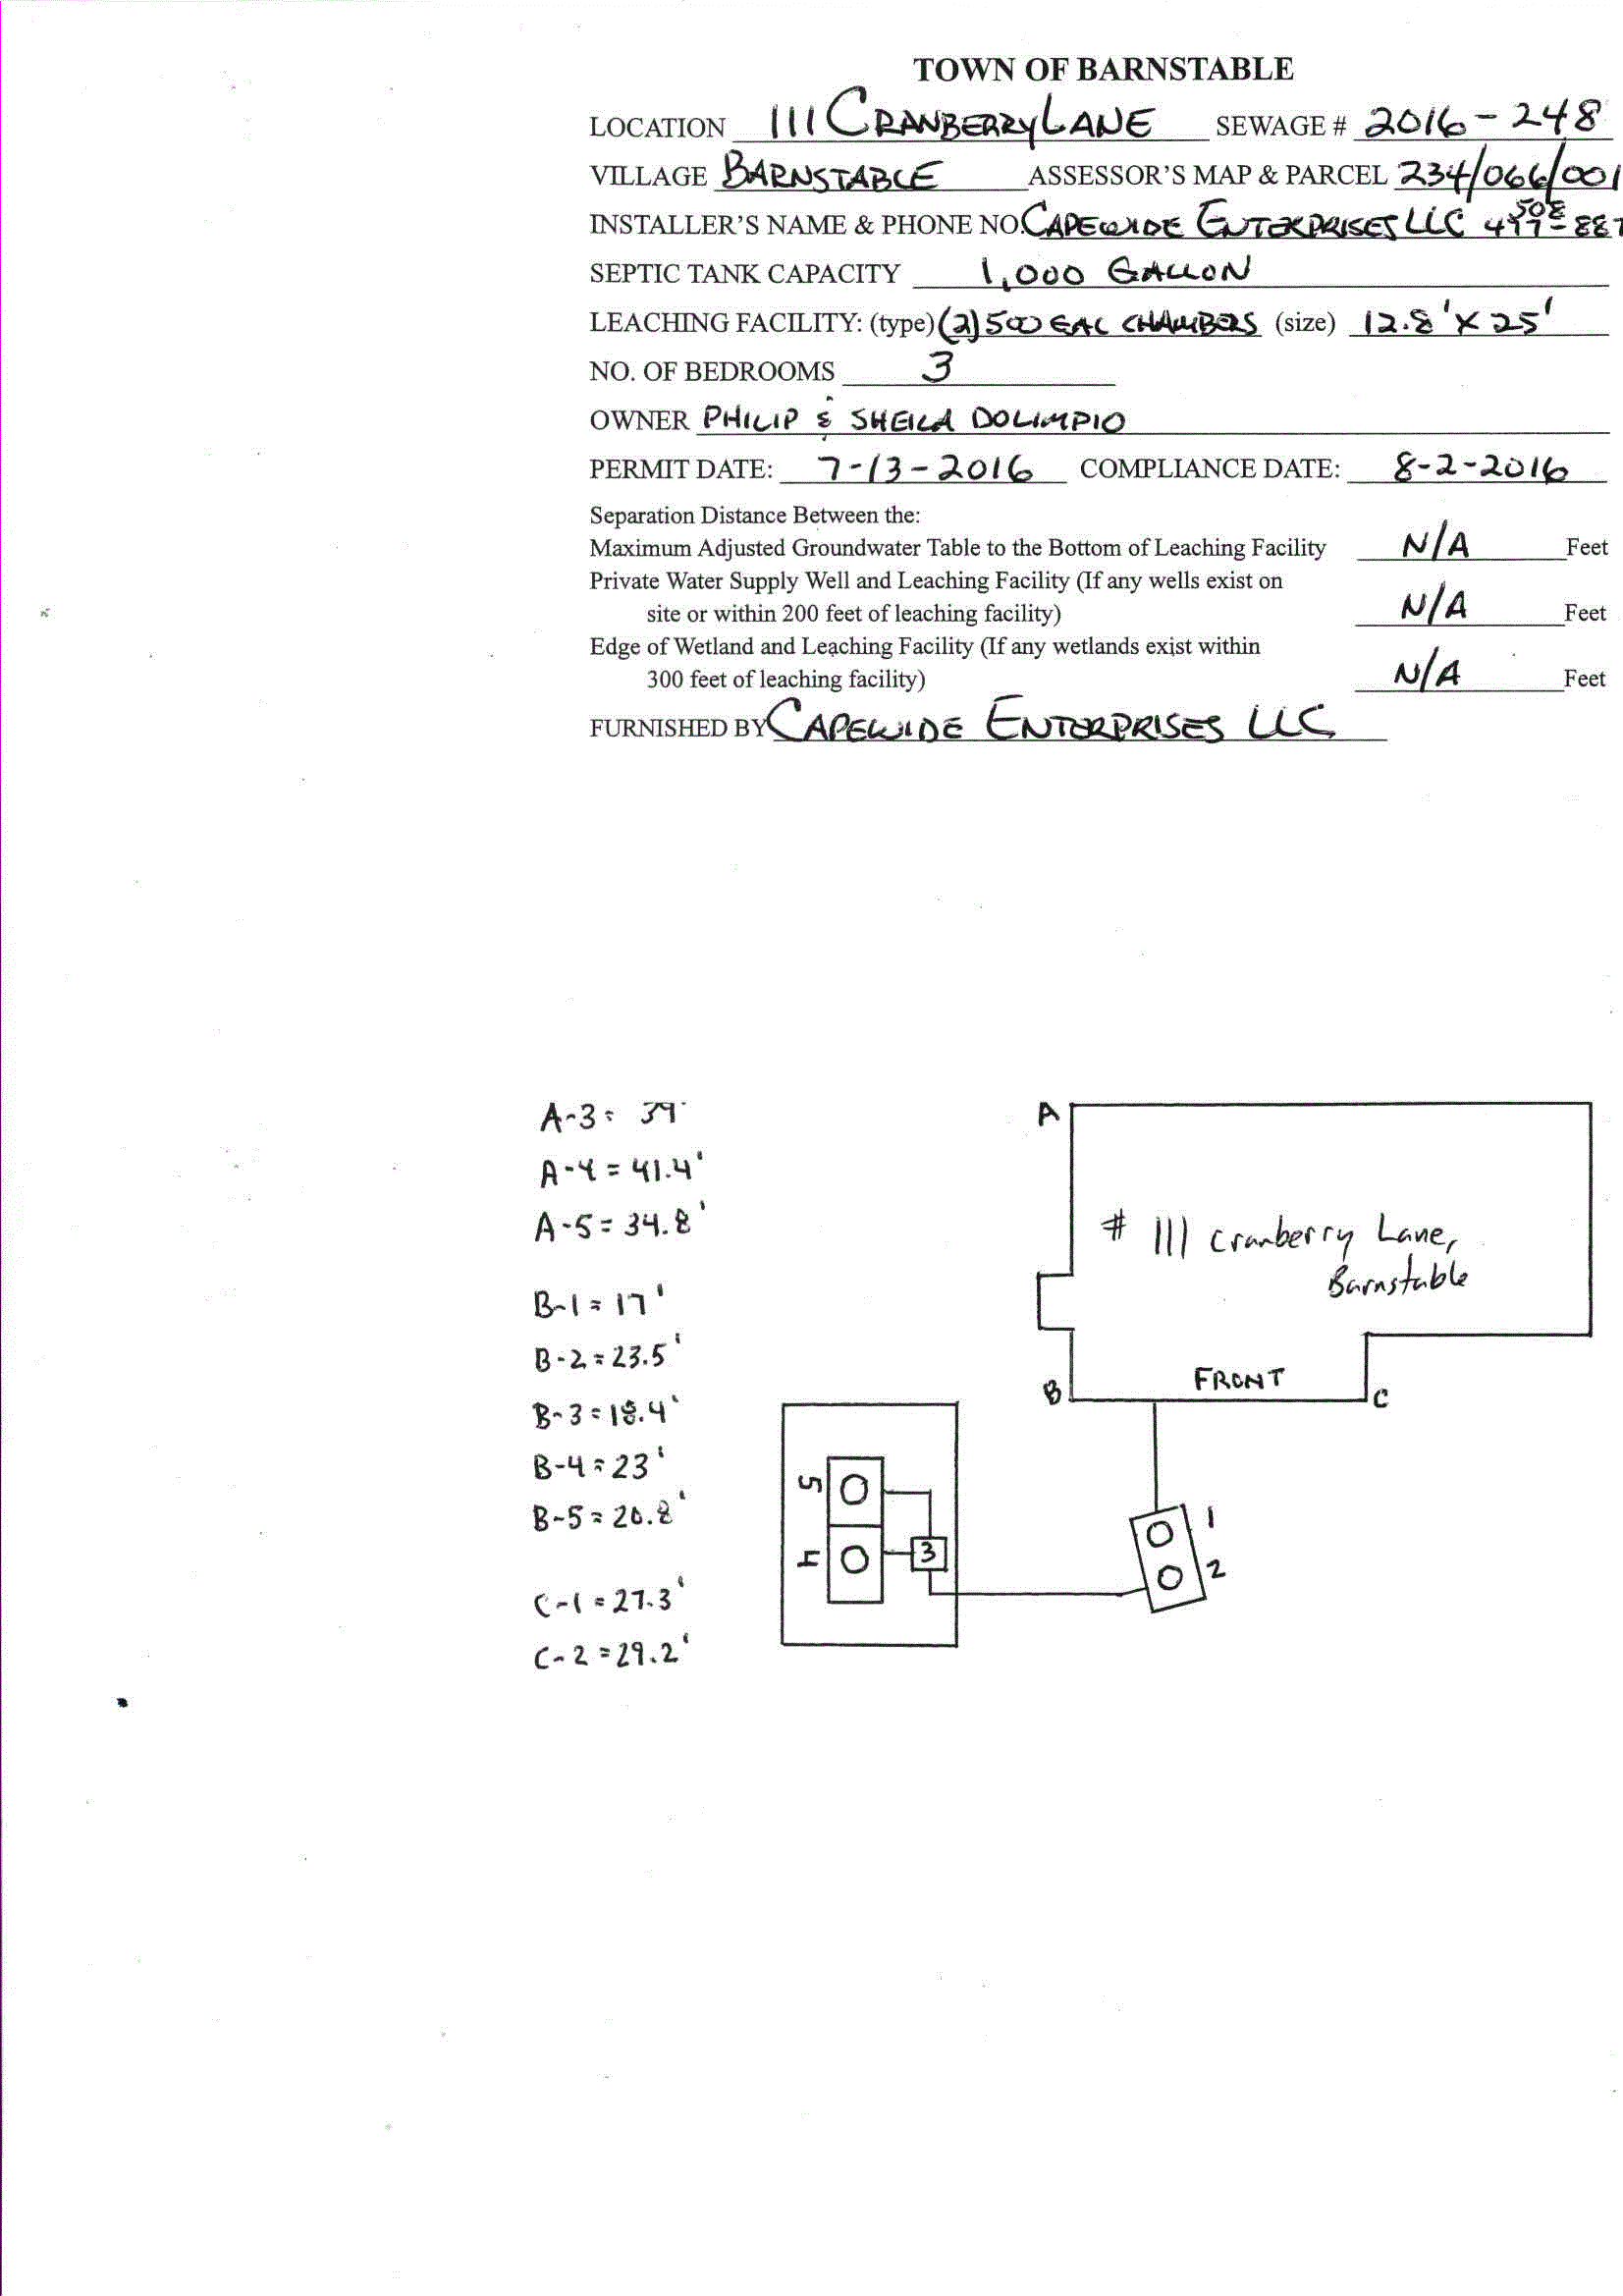 TOWN OF BARNSTABLE
LOCATION 111 CRANBERRY LANE SEWAGE # 2016-248
VILLAGE BARNSTABLE ASSESSOR'S MAP & PARCEL 234/066/001
INSTALLER'S NAME & PHONE NO. CAPEWIDE ENTERPRISES LLC 508 477-887
SEPTIC TANK CAPACITY 1,000 GALLON
LEACHING FACILITY: (type) (2) 500 GAL CHAMBERS (size) 12.8' X 25'
NO. OF BEDROOMS 3
OWNER PHILIP & SHEILA DOLIMPIO
PERMIT DATE: 7-13-2016 COMPLIANCE DATE: 8-2-2016
Separation Distance Between the:
Maximum Adjusted Groundwater Table to the Bottom of Leaching Facility N/A Feet
Private Water Supply Well and Leaching Facility (If any wells exist on
site or within 200 feet of leaching facility) N/A Feet
Edge of Wetland and Leaching Facility (If any wetlands exist within
300 feet of leaching facility) N/A Feet
FURNISHED BY CAPEWIDE ENTERPRISES LLC
A-3 = 39'
A-4 = 41.4'
A-5 = 34.8'
B-1 = 17'
B-2 = 23.5'
B-3 = 18.4'
B-4 = 23'
B-5 = 20.8'
C-1 = 27.3'
C-2 = 29.2'
A
# 111 Cranberry Lane,
Barnstable
FRONT
B
C
5
4
3
1
2